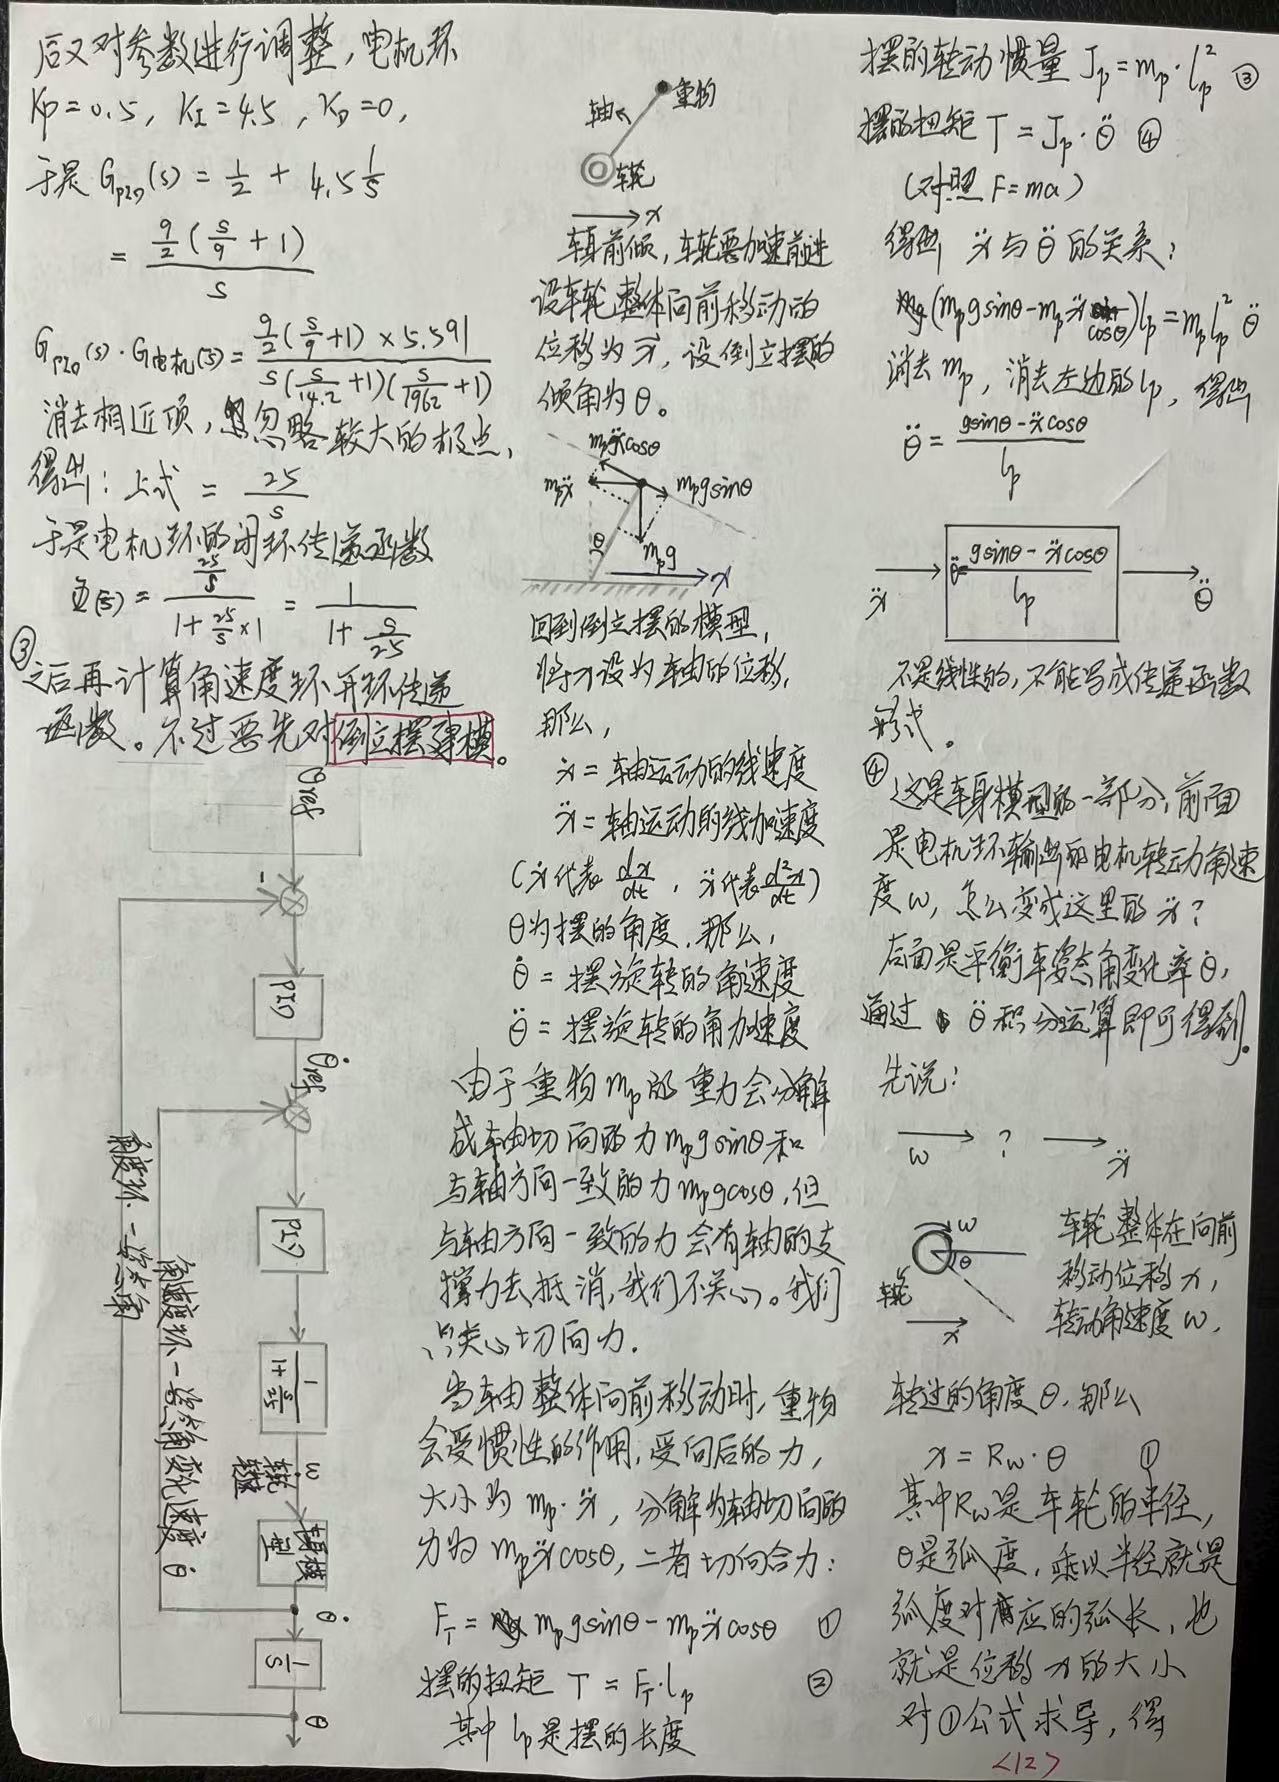 后又对参数进行调整，电机环
Kp=0.5, KI=4.5, KD=0,
于是 GPID(s) = 1/2 + 4.5 1/s
= 9/2(s/9+1) / s
GPID(s)·G电机(s) = 9/2(s/9+1)×5.591 / s(s/14.2+1)(s/1962+1)
消去相近项，忽略较大的极点，
得出：上式 = 25/s
于是电机环的闭环传递函数
Φ(s) = (25/s) / (1+25/s×1) = 1 / (1+s/25)
③之后再计算角速度环开环传递
函数。不过要先对倒立摆建模。
θref
-
PID
θ̇ref
-
PID
1/(1+s/25)
ω 车轮转速
车身模型
θ̇
1/s
θ
角度环·一姿态角
角速度环·一姿态角变化速度 θ̇
重物
轴
车轮
x
车身前倾，车轮要加速前进
设车轮整体向前移动的
位移为x，设倒立摆的
倾角为θ。
mpẍcosθ
mpẍ
mpgsinθ
θ
mpg
x
回到倒立摆的模型，
将x设为车轴的位移，
那么，
ẋ=轴运动的线速度
ẍ=轴运动的线加速度
(ẋ代表dx/dt，ẍ代表d²x/dt)
θ为摆的角度，那么，
θ̇=摆旋转的角速度
θ̈=摆旋转的角加速度
由于重物mp的重力会分解
成轴切向的力mpgsinθ和
与轴方向一致的力mpgcosθ，但
与轴方向一致的力会有轴的支
撑力去抵消，我们不关心。我们
只关心切向力.
当轴整体向前移动时，重物
会受惯性的作用，受向后的力，
大小为mp·ẍ，分解为轴切向的
力为mpẍcosθ，二者切向合力：
FT = mpgsinθ-mpẍcosθ ①
摆的扭矩 T = FT·lp ②
其中lp是摆的长度
摆的转动惯量 Jp=mp·lp² ③
摆的扭矩 T=Jp·θ̈ ④
(对照F=ma)
得出 ẍ与θ̈的关系：
(mpgsinθ-mpẍcosθ)lp=mplp²θ̈
消去mp，消去左边的lp，得出
θ̈ = (gsinθ-ẍcosθ) / lp
ẍ
θ̈=(gsinθ-ẍcosθ) / lp
θ̈
不是线性的，不能写成传递函数
形式。
④这是车身模型的一部分，前面
是电机环输出的电机转动角速
度ω，怎么变成这里的ẍ?
后面是平衡车姿态角变化率θ̇，
通过θ̈积分运算即可得到。
先说：
ω ? ẍ
ω
θ
车轮
x
车轮整体在向前
移动位移x，
转动角速度ω，
转过的角度θ，那么
x = Rw·θ ①
其中Rw是车轮的半径，
θ是弧度，乘以半径就是
弧度对应的弧长，也
就是位移x的大小
对①公式求导，得
<12>